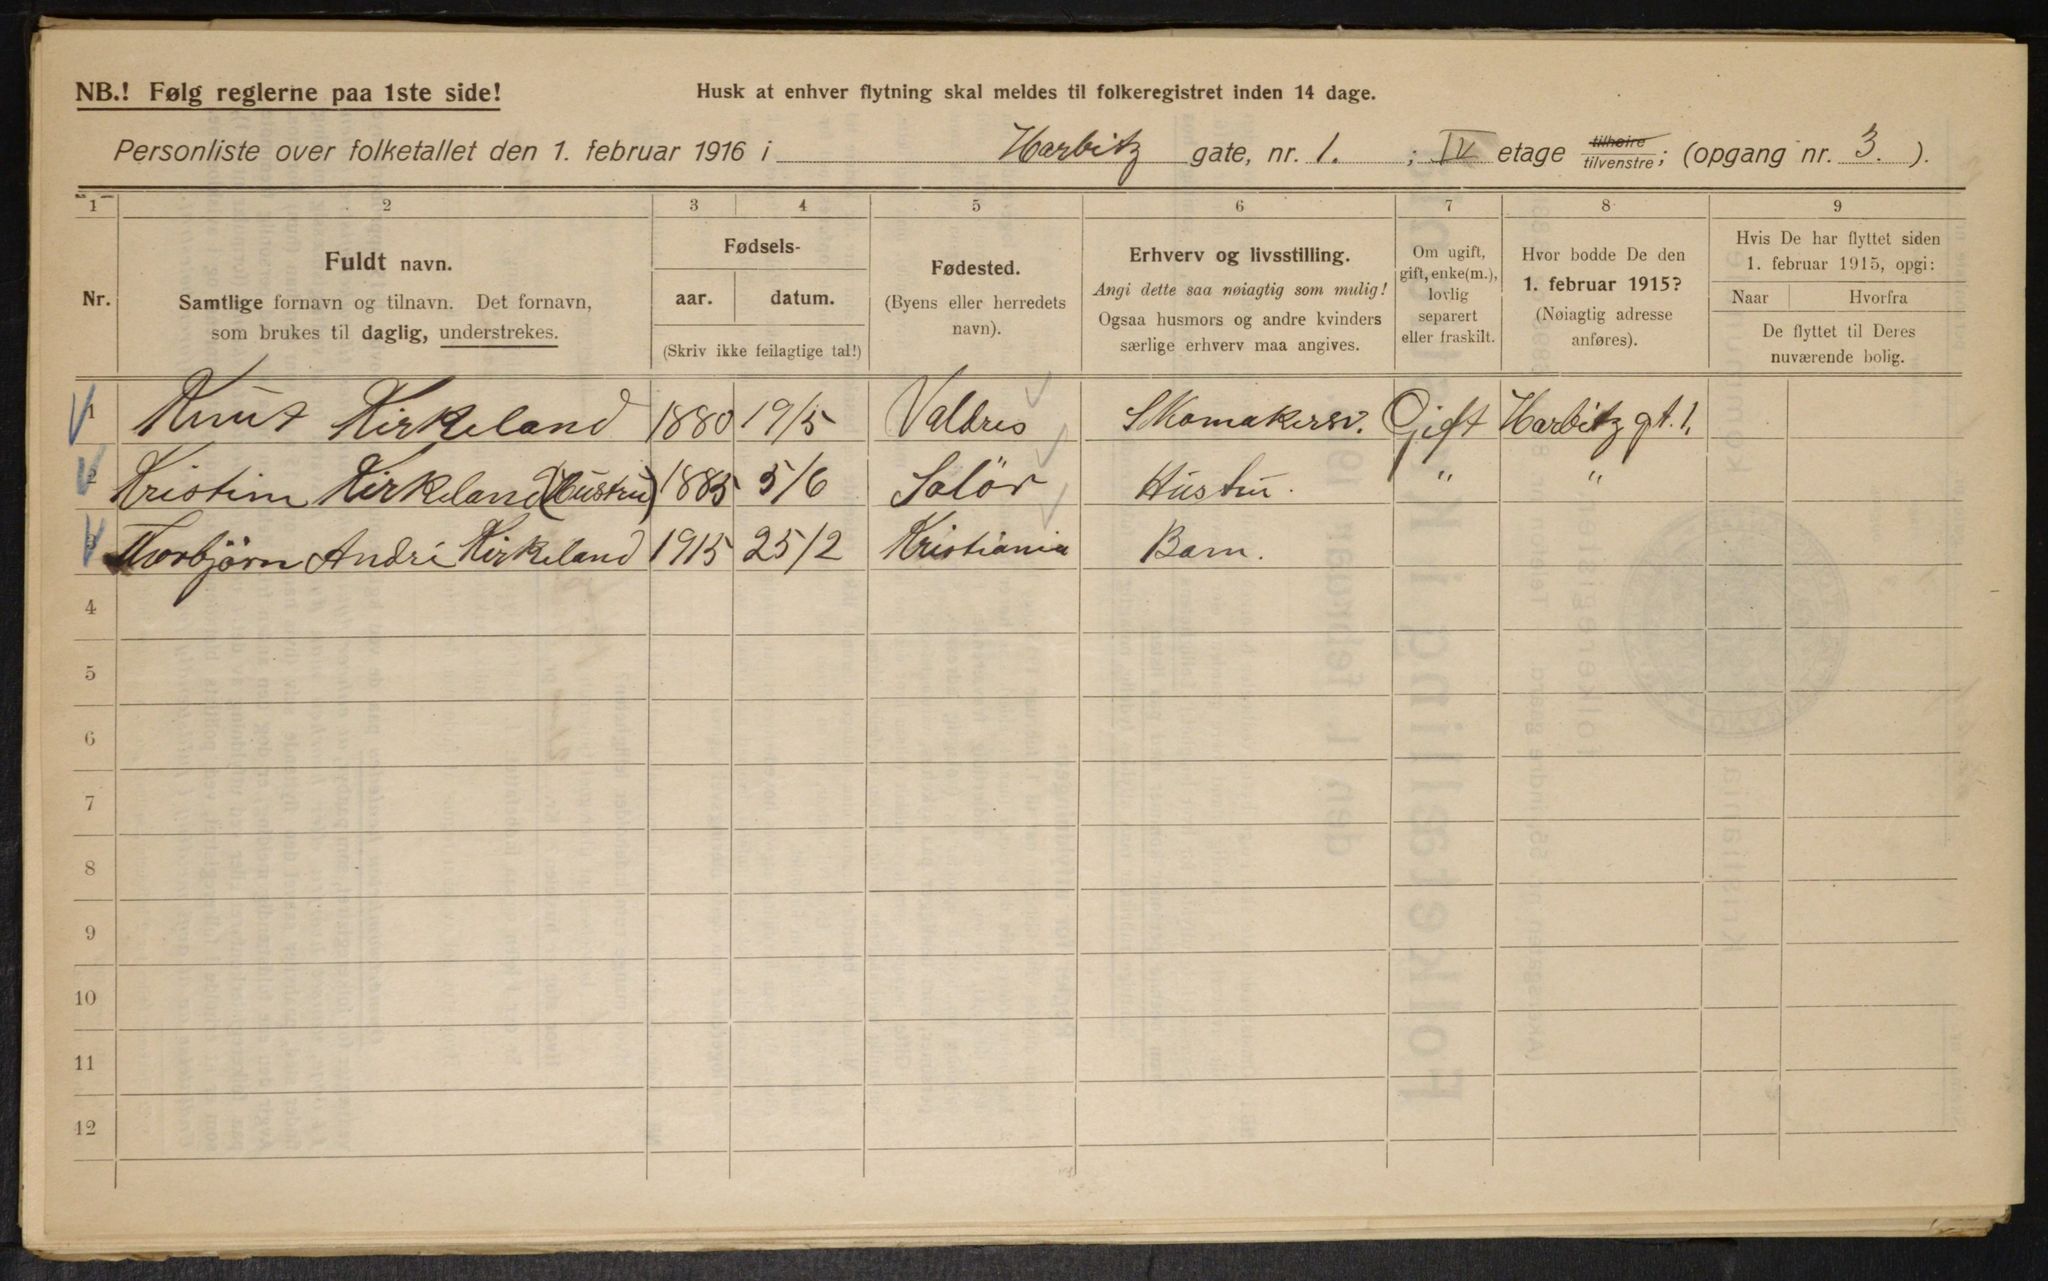 NB.! Følg reglerne paa 1ste side!
Husk at enhver flytning skal meldes til folkeregistret inden 14 dage.
Personliste over folketallet den 1. februar 1916 i Harbitz gate, nr. 1. ; IV etage tilhøire tilvenstre; (opgang nr. 3. ).
1 2 3 4 5 6 7 8 9
Nr.
Fuldt navn.
Samtlige fornavn og tilnavn. Det fornavn,
som brukes til daglig, understrekes.
Fødsels-
aar. datum.
(Skriv ikke feilagtige tal!)
Fødested.
(Byens eller herredets
navn).
Erhverv og livsstilling.
Angi dette saa nøiagtig som mulig!
Ogsaa husmors og andre kvinders
særlige erhverv maa angives.
Om ugift,
gift, enke(m.),
lovlig
separert
eller fraskilt.
Hvor bodde De den
1. februar 1915?
(Nøiagtig adresse
anføres).
Hvis De har flyttet siden
1. februar 1915, opgi:
Naar Hvorfra
De flyttet til Deres
nuværende bolig.
1 Knut Kirkeland 1880 19/5 Valdres Skomakersv. Gift Harbitz gt. 1.
2 Kristine Kirkeland (Hustru) 1885 5/6 Solör Hustru. " "
3 Thorbjörn André Kirkeland 1915 25/2 Kristiania Barn.
4
5
6
7
8
9
10
11
12